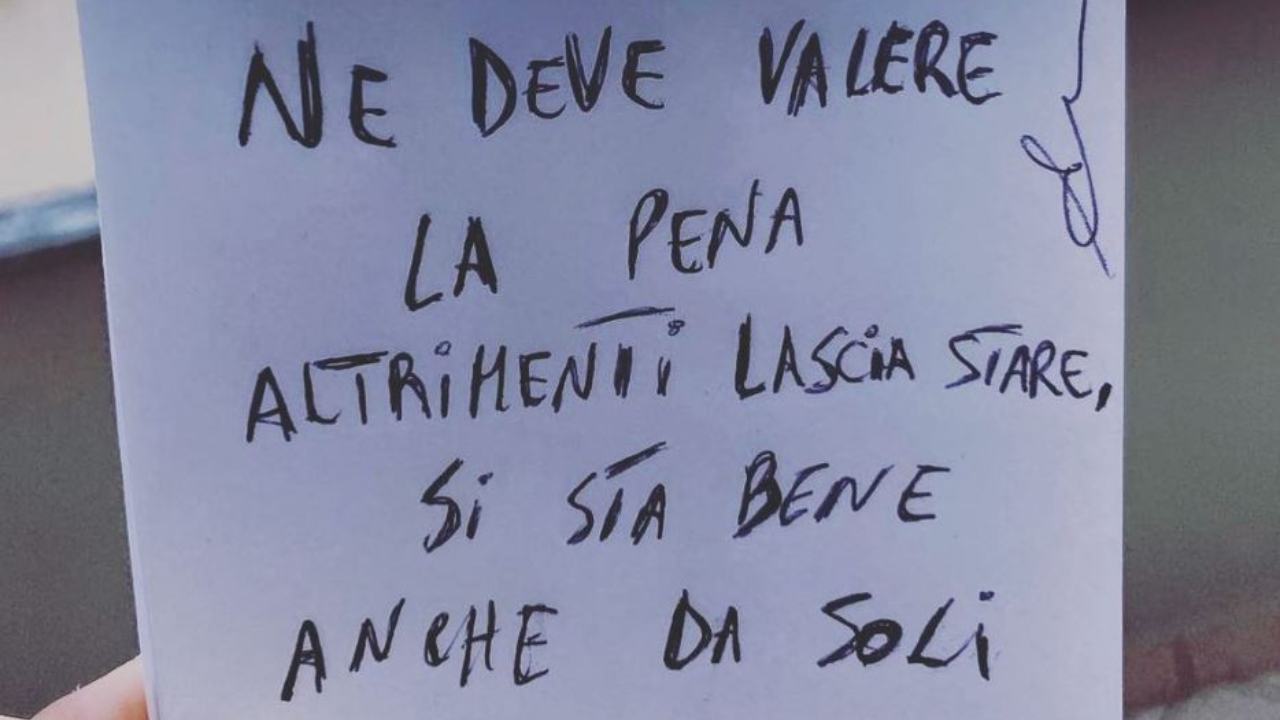 NE DEVE VALERE
LA PENA
ALTRiMENTi LASCiA STARE,
Si STA BENE
ANCHE DA SOLi